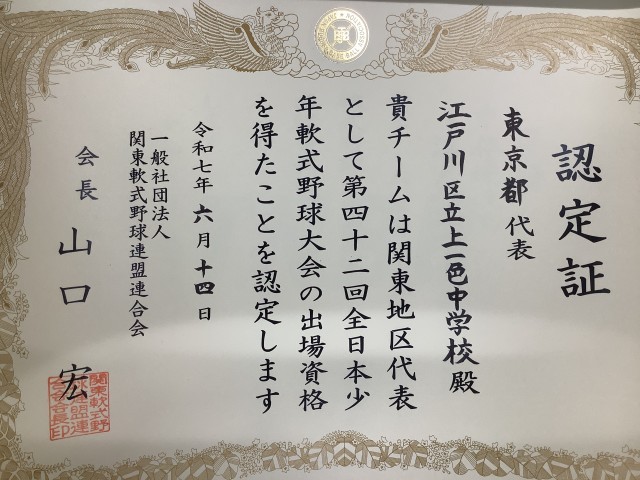 認定証
東京都 代表
江戸川区立上一色中学校 殿
貴チームは関東地区代表
として第四十二回全日本少
年軟式野球大会の出場資格
を得たことを認定します
令和七年 六月 十四日
一般社団法人
関東軟式野球連盟連合会
会長 山口 宏
関東軟式野
球連盟連
合会会長印